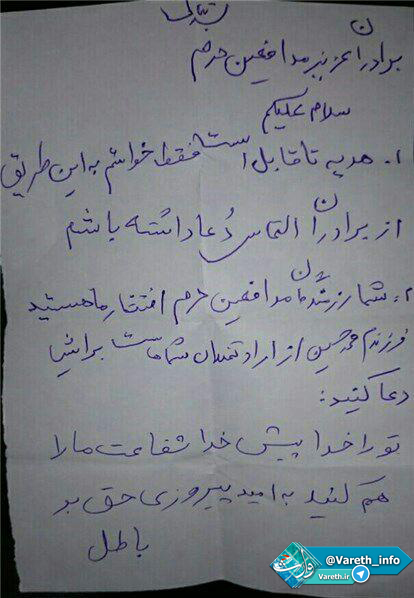 بسمه تعالی
برادران عزیز مدافعین حرم
سلام علیکم
۱. هدیه ناقابل است فقط خواستم به این طریق
از برادران التماس دعا داشته باشم
۲. شما رزمندگان مدافعین حرم افتخار ما هستید
فرزندم محمد حسین از ارادتمندان شماست برایش
دعا کنید:
تو را خدا پیش خدا شفاعت ما را
هم کنید به امید پیروزی حق بر
باطل
@Vareth_info
Vareth.ir